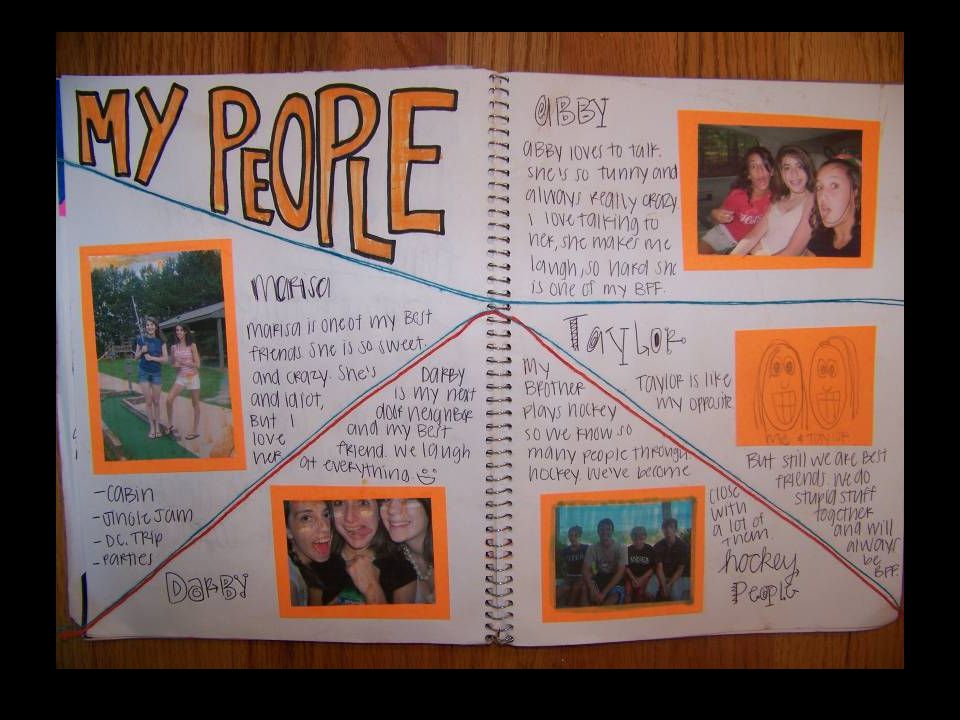 MY PEOPLE
Marisa
Marisa is one of my Best
friends. She is so sweet.
and crazy. She's
and idiot,
But I
love
her
-Cabin
-Jingle Jam
-D.C. Trip
-Parties
Darby
is my next
door neighbor
and my Best
friend. We laugh
at everything
Darby
aBBY
aBBy loves to talk.
She is so funny and
always really crazy.
I love talking to
her, she makes me
laugh, so hard she
is one of my BFF.
Taylor
Taylor is like
my opposite.
me & Taylor
But still we are Best
friends. We do
stupid stuff
together
and will
always
be
BFF.
My
Brother
plays hockey
so we know so
many people through
hockey. We've become
close
with
a lot of
them.
hockey
People